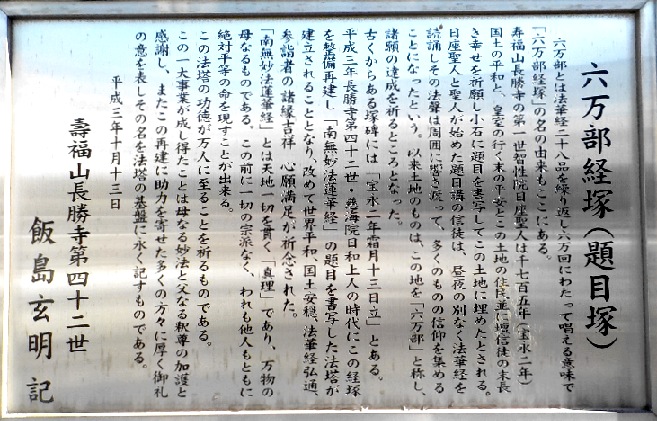 六万部経塚(題目塚)
六万部とは法華経二十八品を繰り返し六万回にわたって唱える意味で
「六万部経塚」の名の由来もここにある。
寿福山長勝寺の第一世智性院日座聖人は千七百五年(宝永二年)
国土の平和と、皇室の行く末の平安とこの土地の住民並に壇信徒の末長
き幸せを祈願し小石に題目を書写してこの土地に埋めたとされる。
日座聖人と聖人が始めた題目講の信徒は、昼夜の別なく法華経を
読誦しその法聲は周囲に響き渡って、多くのものの信仰を集める
ことになったという。以来土地のものは、この地を「六万部」と称し、
諸願の達成を祈るところとなった。
古くからある塚碑には「宝永二年霜月十三日立」とある。
平成三年長勝寺第四十二世・慈海院日和上人の時代にこの経塚
を整備再建し「南無妙法蓮華経」の題目を書写した法塔が
建立されることとなり、改めて世界平和、国土安穏、法華経弘通、
参詣者の諸縁吉祥 心願満足が祈念された。
「南無妙法蓮華経」とは天地一切を貫く「真理」であり、万物の
母なるものである。この前に一切の宗派なく、われも他人もともに
絶対平等の命を現すことが出来る。
この法塔の功徳が万人に至ることを祈るものである。
この一大事業が成し得たことは母なる妙法と父なる釈尊の加護と
感謝し、またこの再建に助力を寄せた多くの方々に厚く御礼
の意を表しその名を法塔の基盤に永く記すものである。
平成三年十月十三日
壽福山長勝寺第四十二世
飯島玄明 記